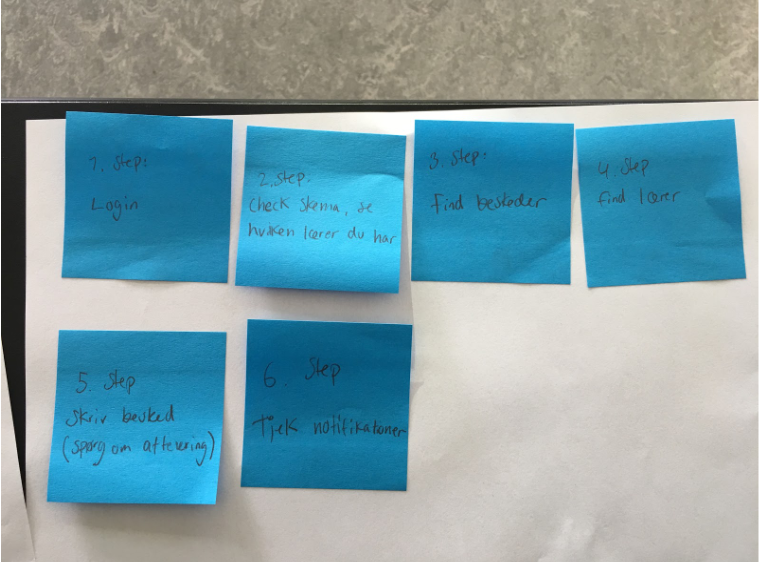 1. Step:
Login
2. Step:
Check Skema, se
hvilken lærer du har
3. Step:
Find beskeder
4. Step
find lærer
5. Step
Skriv besked
(spørg om aflevering)
6. Step
Tjek notifikationer